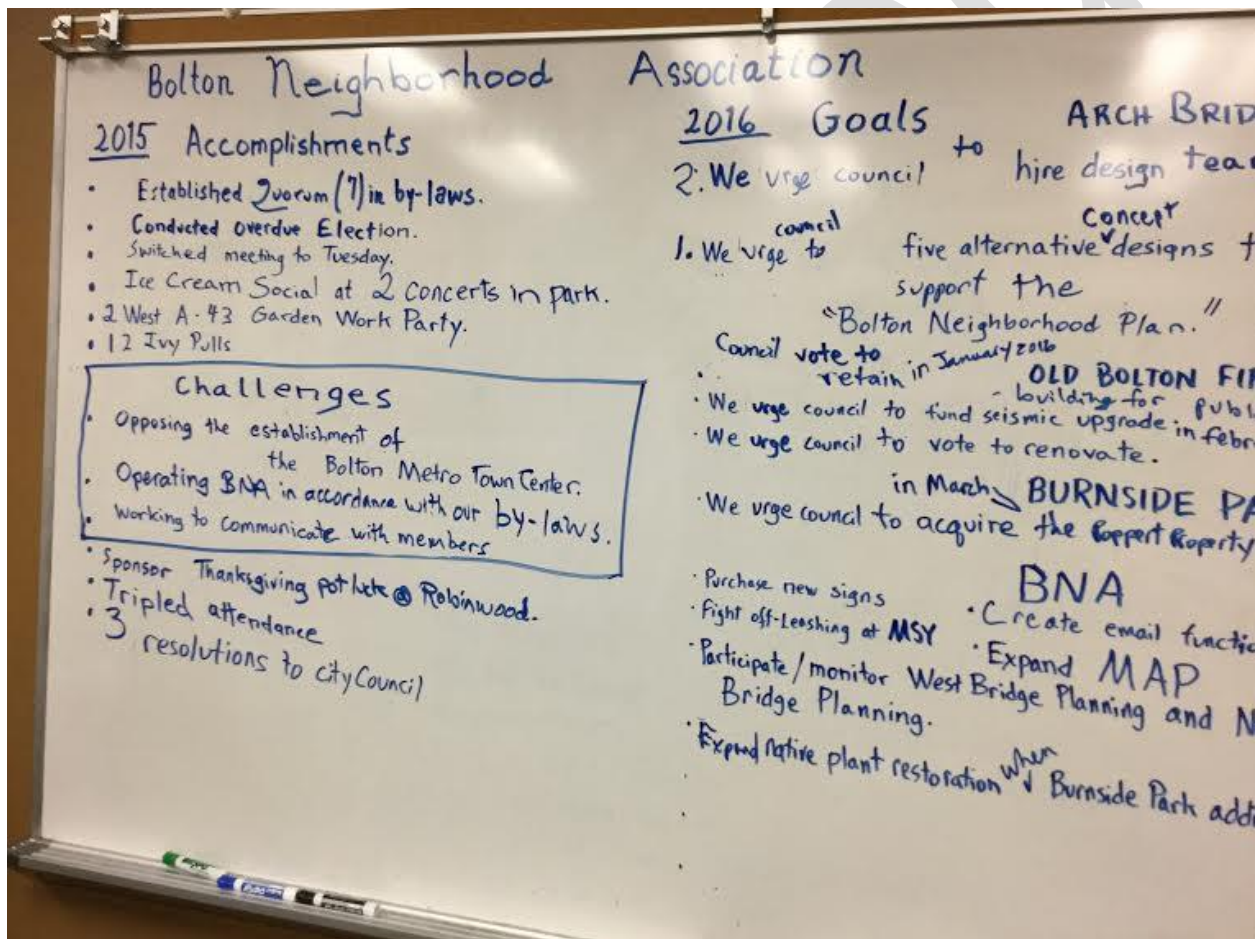 Bolton Neighborhood Association
2015 Accomplishments
• Established Quorum (7) in by-laws.
• Conducted overdue Election.
• Switched meeting to Tuesday.
• Ice Cream Social at 2 concerts in park.
• 2 West A-43 Garden Work Party.
• 12 Ivy Pulls
Challenges
• Opposing the establishment of
the Bolton Metro Town Center.
• Operating BNA in accordance with our by-laws.
• Working to communicate with members
• Sponsor Thanksgiving pot luck @ Robinwood.
• Tripled attendance
• 3 resolutions to city Council
2016 Goals
ARCH BRID
2. We urge council to hire design tea
council concept
1. We urge to five alternative designs t
support the
"Bolton Neighborhood Plan."
Council vote to
retain in January 2016
• OLD BOLTON FI
- building for publ
• We urge council to fund seismic upgrade in febr
• We urge council to vote to renovate.
in March BURNSIDE PA
• We urge council to acquire the Property
BNA
• Purchase new signs
• Create email functi
• Fight off-Leashing at MSY
• Expand MAP
• Participate/monitor West Bridge Planning and N
Bridge Planning.
• Expand native plant restoration when Burnside Park addi